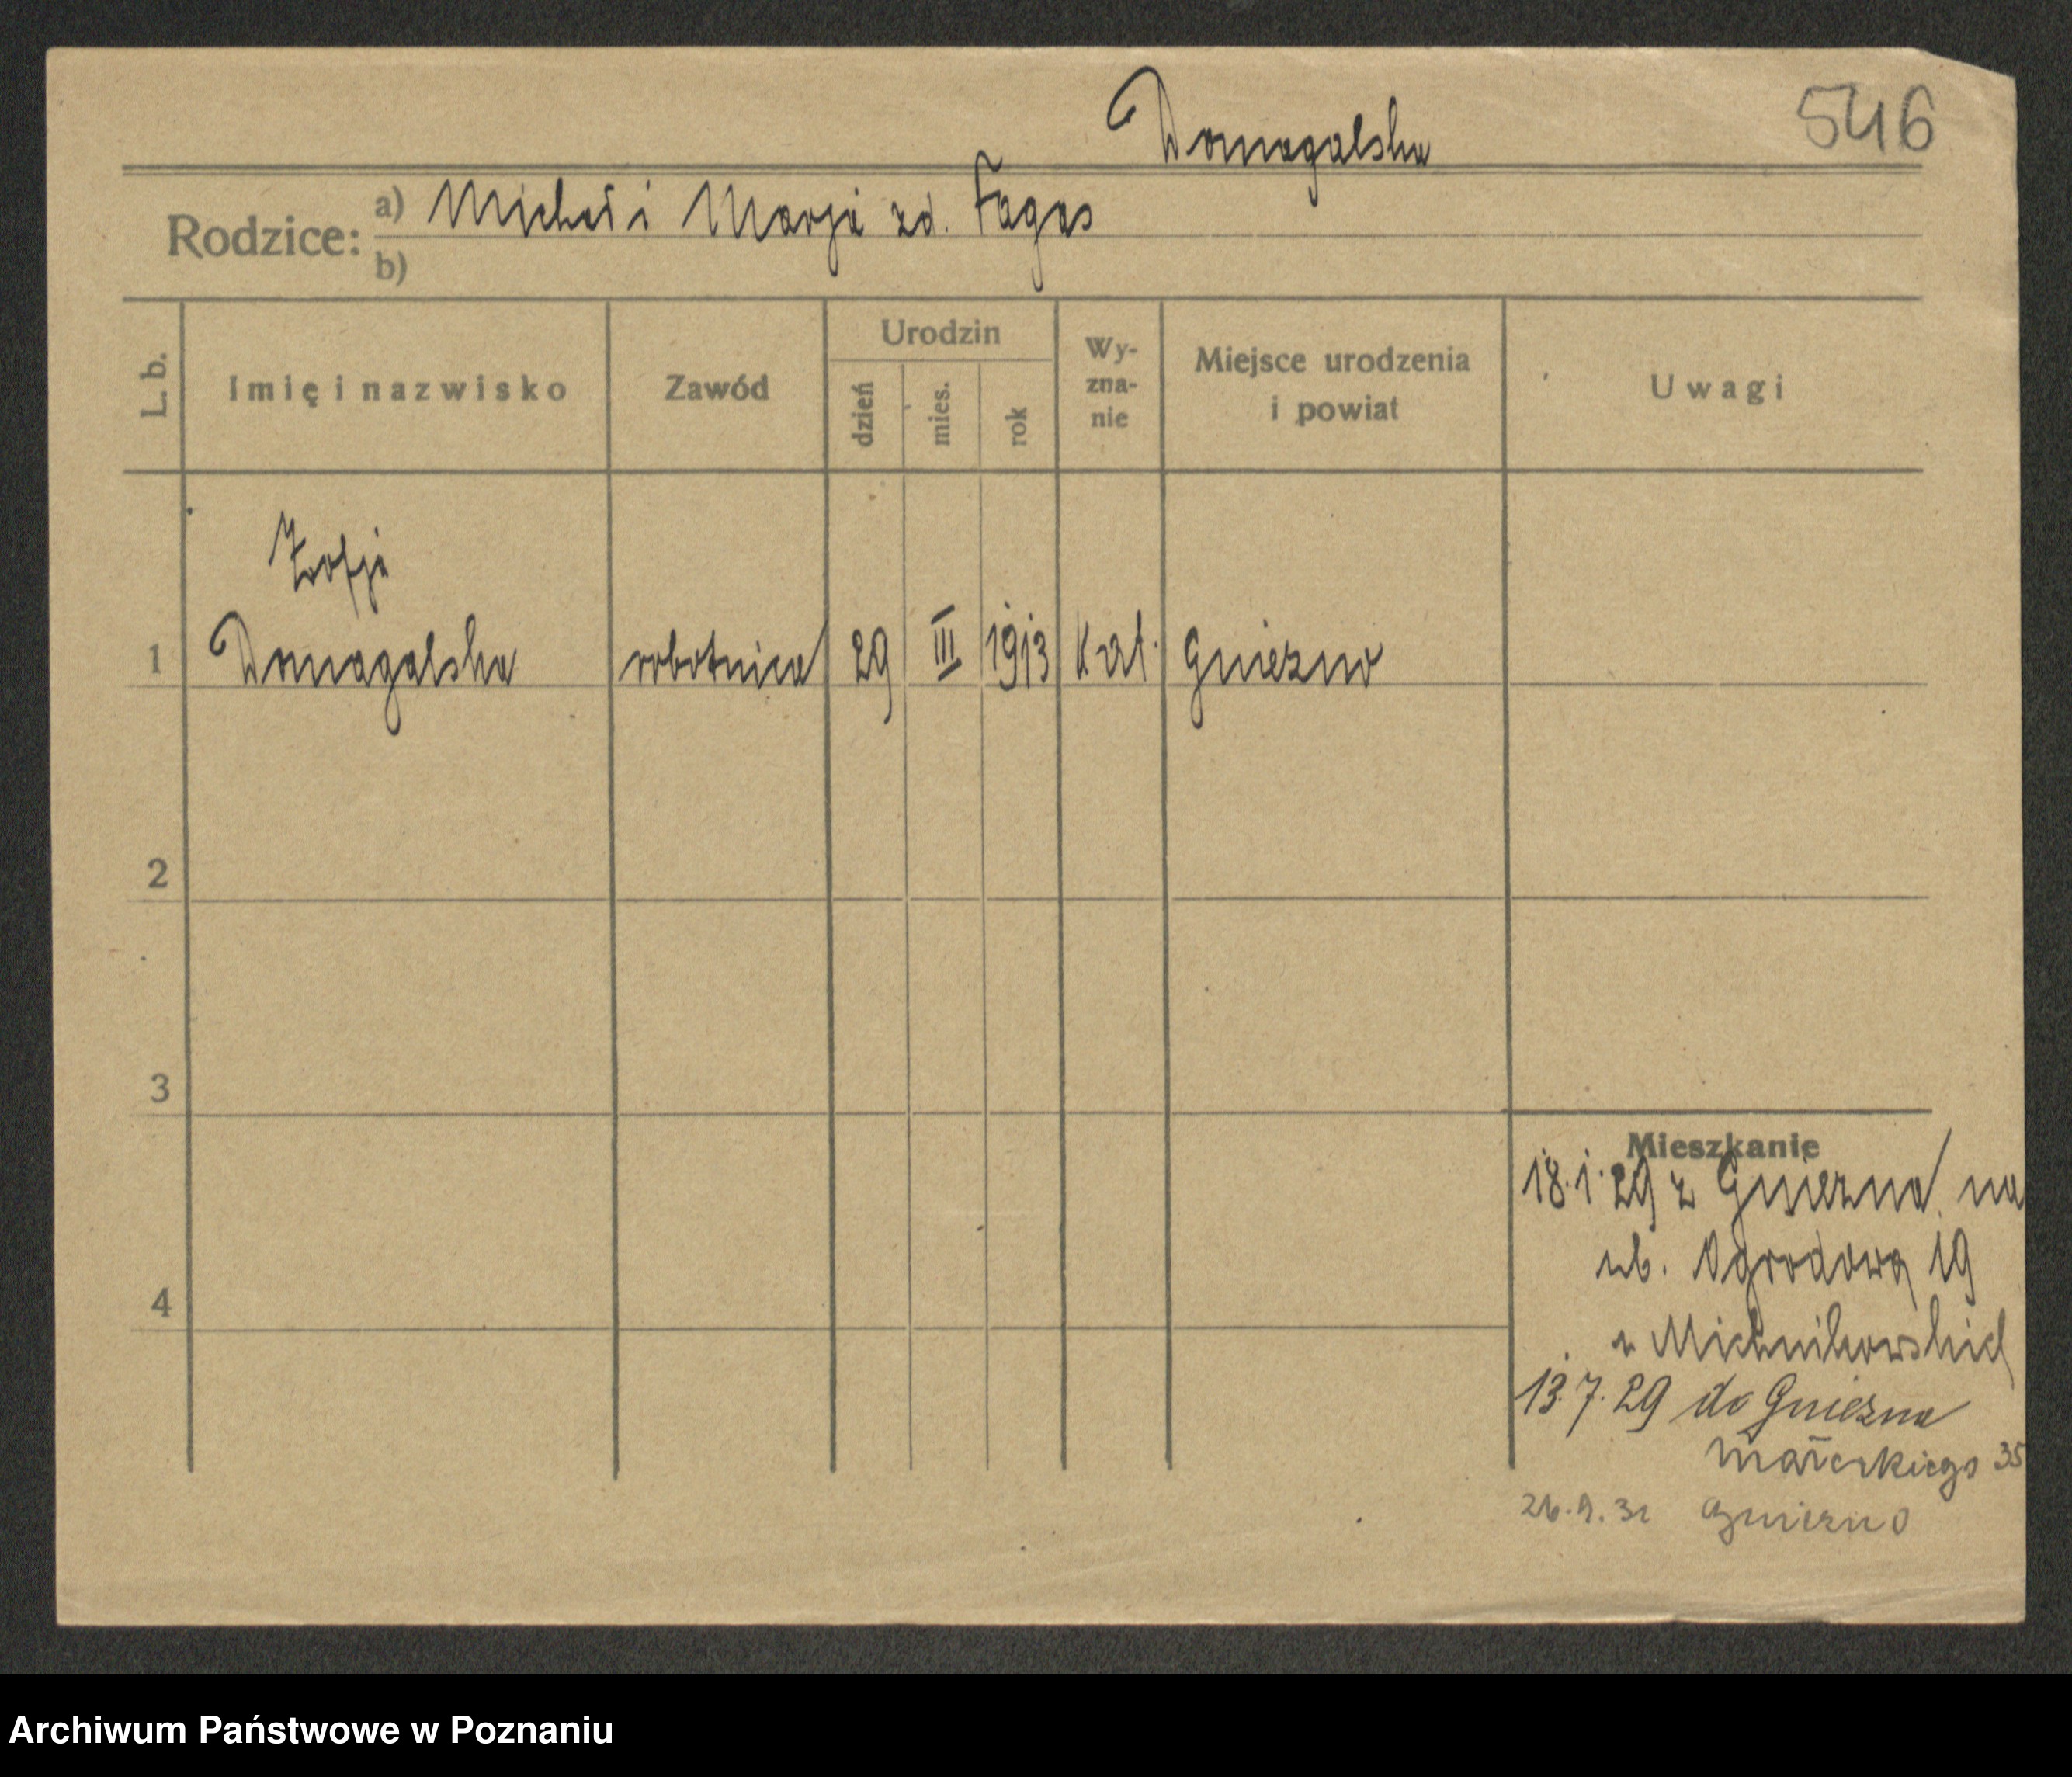 Domagalska
546
Rodzice: a) Michał i Marja zd. Fagas
b)
L. b.
Imię i nazwisko
Zawód
Urodzin
dzień
mies.
rok
Wy-
zna-
nie
Miejsce urodzenia
i powiat
Uwagi
Zofja
1 Domagalska robotnica 29 III 1913 kat. Gniezno
2
3
4
Mieszkanie
18.1.29 z Gniezna na
ul. Ogrodową 19
u Michnikowskich
13.7.29 do Gniezna
Małeckiego 35
Gniezno
Archiwum Państwowe w Poznaniu